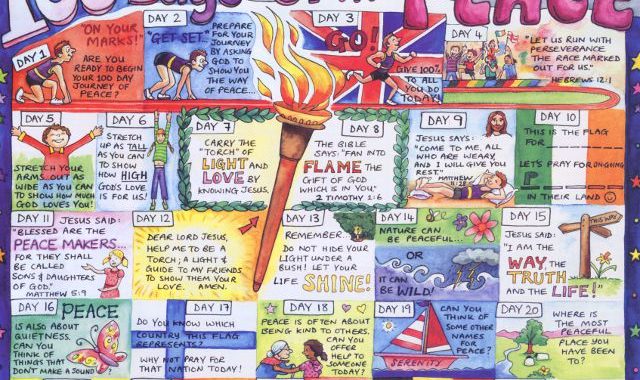 100 Days of
PEACE
DAY 1
"ON YOUR
MARKS!"
ARE YOU
READY TO BEGIN
YOUR 100 DAY
JOURNEY OF
PEACE?
DAY 2
"GET SET...
PREPARE
FOR YOUR
JOURNEY
BY ASKING
GOD TO
SHOW YOU
THE WAY
OF PEACE...
DAY 3
GO!
GIVE 100%
TO ALL
YOU DO
TODAY!
DAY 4
"LET US RUN WITH
PERSEVERANCE
THE RACE MARKED
OUT FOR US."
HEBREWS 12:1
DAY 5
STRETCH YOUR
ARMS OUT AS
WIDE AS YOU CAN
TO SHOW HOW MUCH
GOD LOVES YOU!
DAY 6
STRETCH
UP AS TALL
AS YOU CAN
TO SHOW
HOW HIGH
GOD'S LOVE
IS FOR US!
DAY 7
CARRY THE
"TORCH" OF
LIGHT AND
LOVE BY
KNOWING JESUS.
DAY 8
THE BIBLE
SAYS: "FAN INTO
FLAME THE
GIFT OF GOD
WHICH IS IN YOU"
2 TIMOTHY 1:6
DAY 9
JESUS SAYS:
"COME TO ME, ALL
WHO ARE WEARY,
AND I WILL GIVE YOU
REST."
MATTHEW
11:28
DAY 10
THIS IS THE FLAG
FOR
LET'S PRAY FOR ONGOING
P
IN THEIR LAND
DAY 11
JESUS SAID:
"BLESSED ARE THE
PEACE MAKERS...
FOR THEY SHALL
BE CALLED
SONS & DAUGHTERS
OF GOD."
MATTHEW 5:9
DAY 12
DEAR LORD JESUS,
HELP ME TO BE A
TORCH; A LIGHT &
GUIDE TO MY FRIENDS
TO SHOW THEM YOUR
LOVE. AMEN.
DAY 13
REMEMBER...
DO NOT HIDE YOUR
LIGHT UNDER A
BUSH! LET YOUR
LIFE SHINE!
DAY 14
NATURE CAN
BE PEACEFUL...
OR
IT CAN
BE WILD!
DAY 15
JESUS SAID:
"I AM THE
WAY THE
TRUTH
AND THE LIFE!"
THIS WAY
DAY 16
PEACE
IS ALSO ABOUT
QUIETNESS.
CAN YOU
THINK OF
THINGS THAT
DON'T MAKE A SOUND?
DAY 17
DO YOU KNOW WHICH
COUNTRY THIS FLAG
REPRESENTS?
WHY NOT PRAY FOR
THAT NATION TODAY!
DAY 18
PEACE IS OFTEN ABOUT
BEING KIND TO OTHERS.
CAN YOU
OFFER
HELP TO
SOMEONE
TODAY?
DAY 19
CAN YOU
THINK OF
SOME OTHER
NAMES
FOR
PEACE?
SERENITY
DAY 20
WHERE IS
THE MOST
PEACEFUL
PLACE YOU
HAVE BEEN
TO?